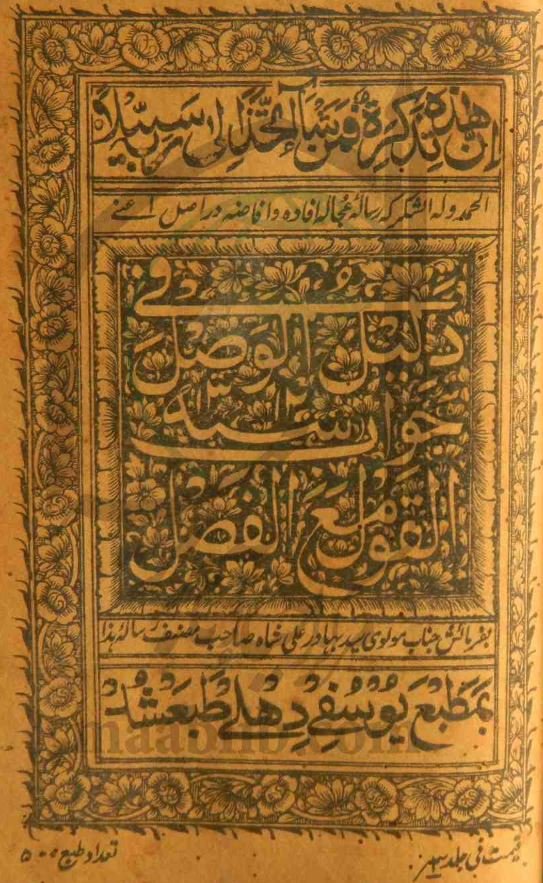 ان هذه تذكرة فمن شاء اتخذ الى ربه سبيلا
الحمد وله الشکر که رسالۂ عجالہ افادہ و افاضہ در اصل اعنے
دليل الوصل فى
جواب
القول مع الفصل
بفرمائش جناب مولوی سید بہادر علی شاہ صاحب مصنف رسالۂ ہذا
بمطبع یوسفی دهلی طبع شد
قیمت فی جلد
تعداد طبع ۵۰۰
maablib.com